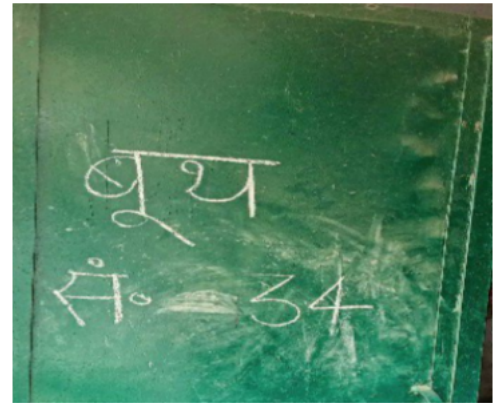 बूथ
सं॰ 34